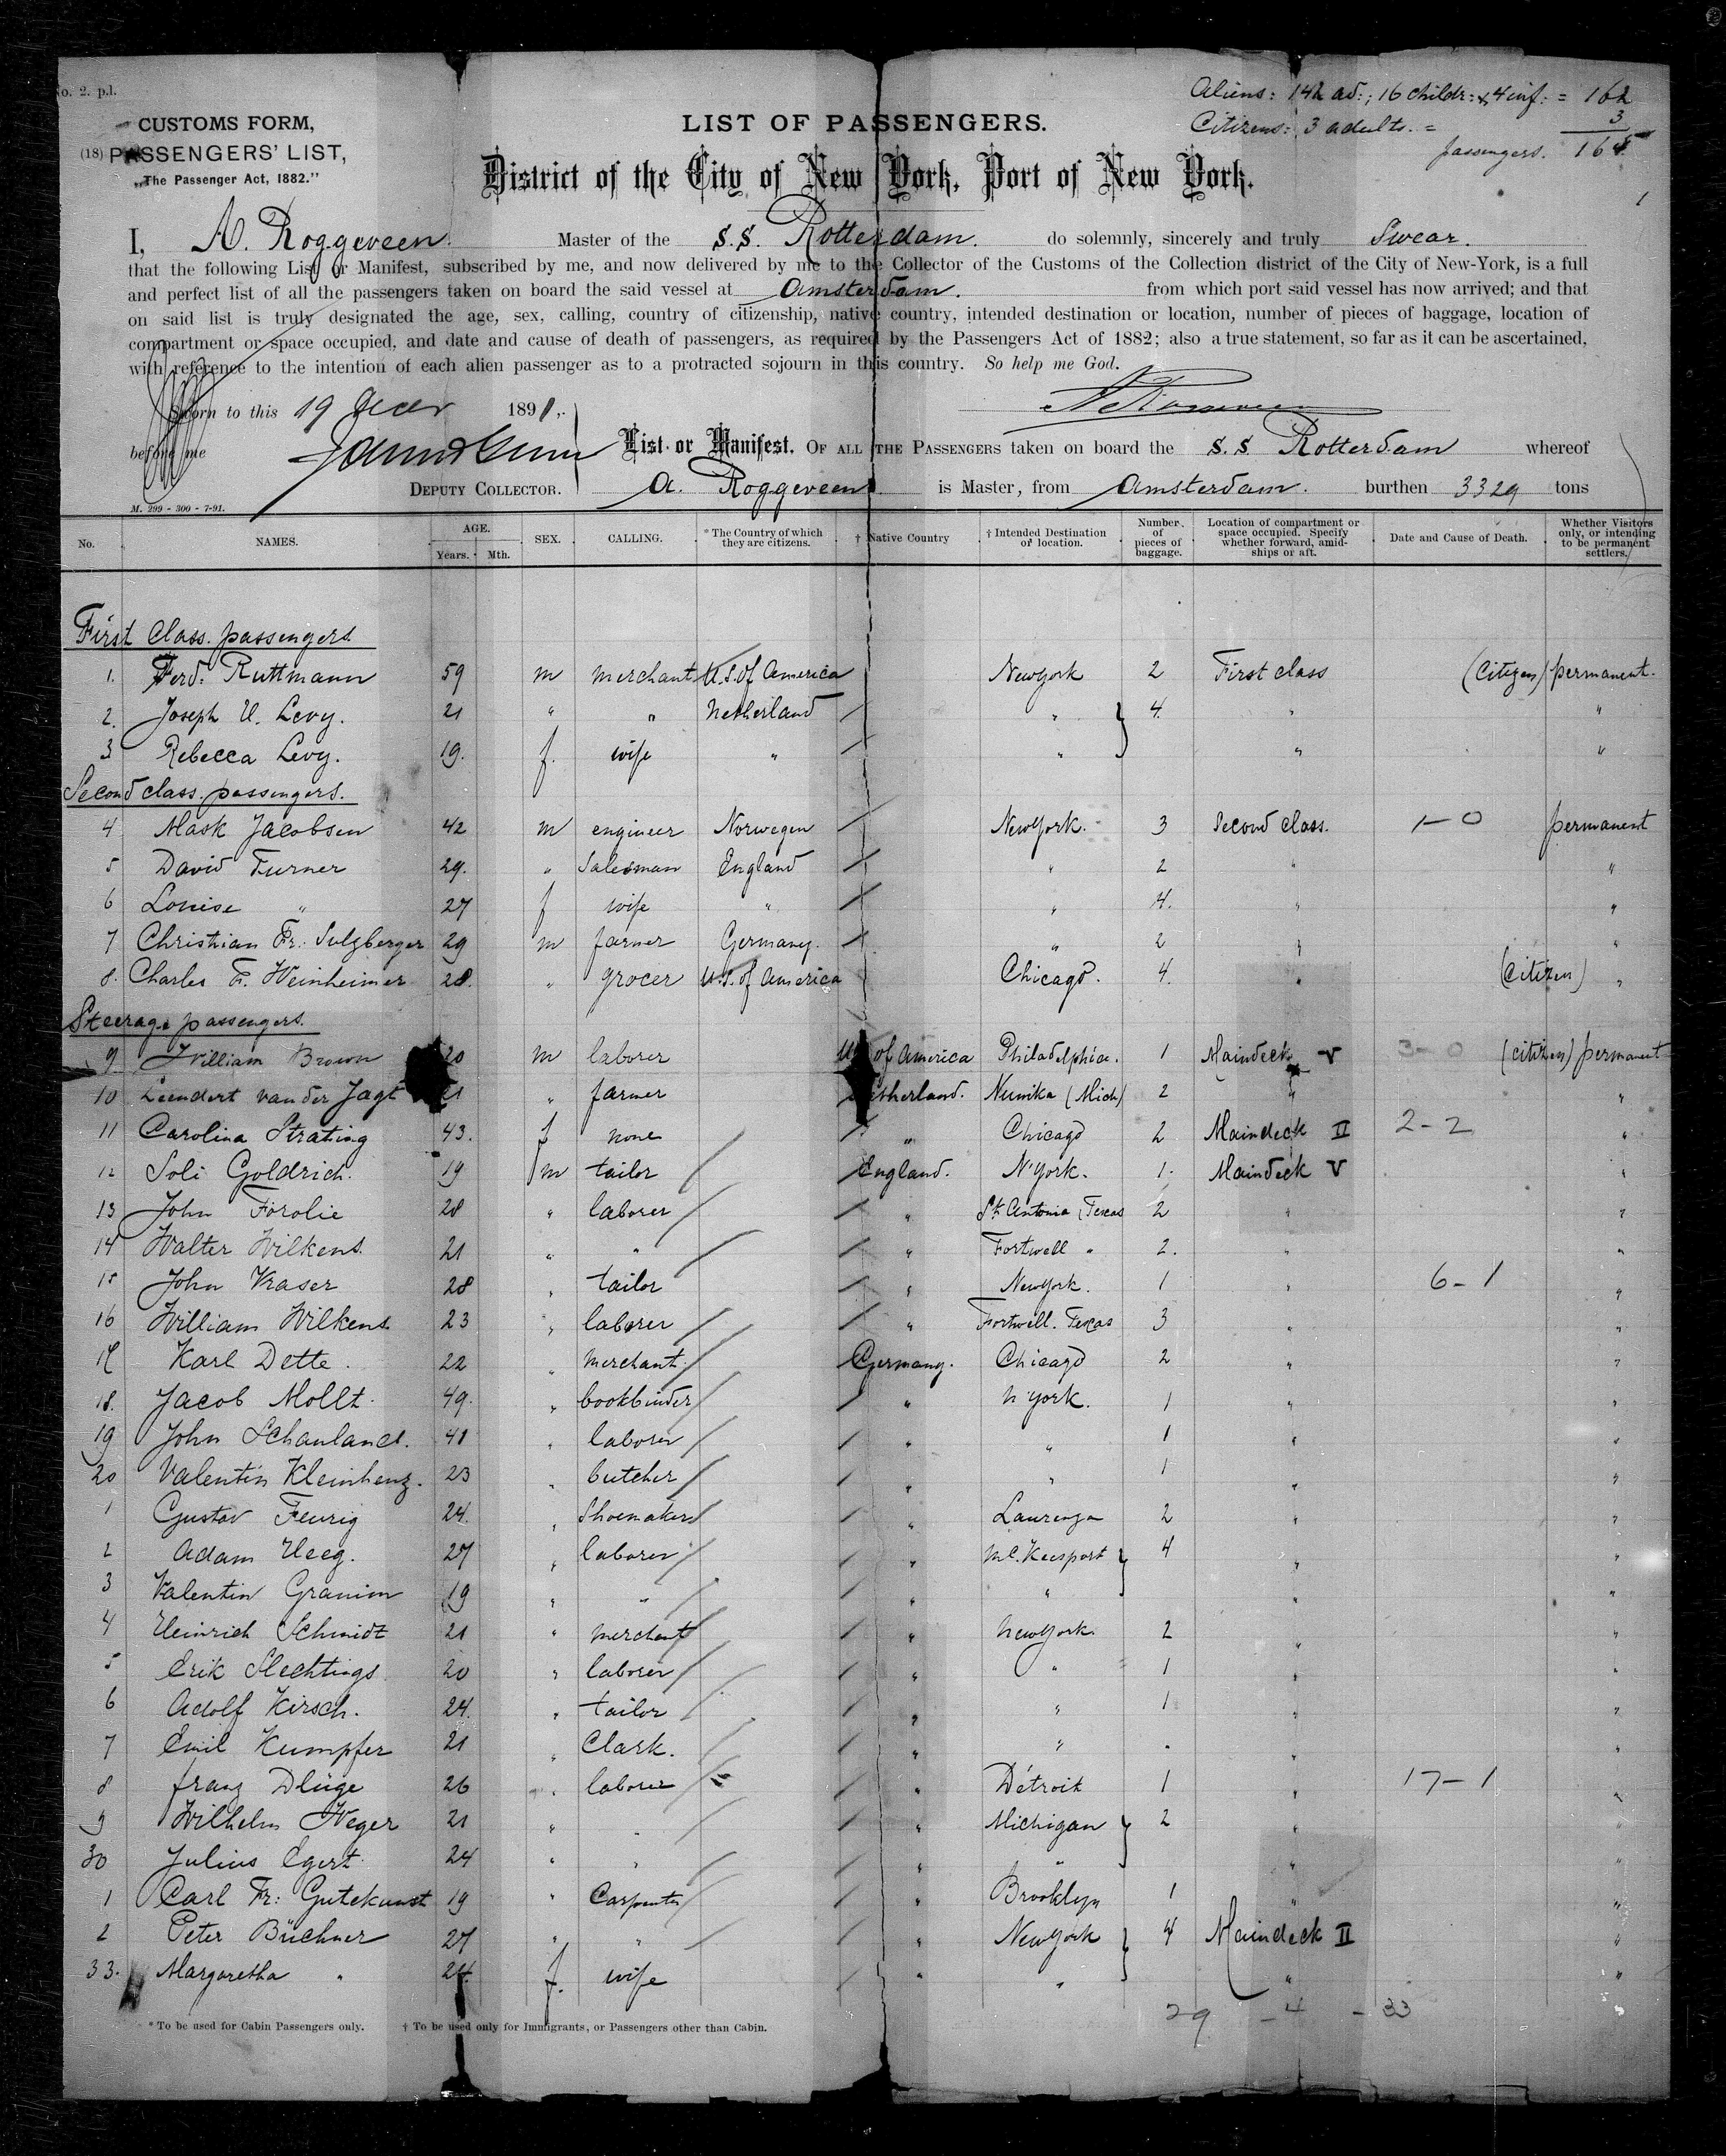 o. 2. p.l.
Aliens: 142 ad:; 16 childr: & 4 inf: = 162
Citizens: 3 adults. = 3
passengers. 165
CUSTOMS FORM,
(18) PASSENGERS' LIST,
"The Passenger Act, 1882."
LIST OF PASSENGERS.
District of the City of New York, Port of New York.
1
I, A. Roggeveen. Master of the S.S. Rotterdam. do solemnly, sincerely and truly Swear.
that the following List or Manifest, subscribed by me, and now delivered by me to the Collector of the Customs of the Collection district of the City of New-York, is a full
and perfect list of all the passengers taken on board the said vessel at Amsterdam. from which port said vessel has now arrived; and that
on said list is truly designated the age, sex, calling, country of citizenship, native country, intended destination or location, number of pieces of baggage, location of
compartment or space occupied, and date and cause of death of passengers, as required by the Passengers Act of 1882; also a true statement, so far as it can be ascertained,
with reference to the intention of each alien passenger as to a protracted sojourn in this country. So help me God.
Sworn to this 19 1891,.
before me
List or Manifest. OF ALL THE PASSENGERS taken on board the S.S Rotterdam whereof
DEPUTY COLLECTOR. A. Roggeveen is Master, from Amsterdam. burthen 3329 tons
M. 299 - 300 - 7-91.
No. NAMES. AGE. Years. Mth. SEX. CALLING. * The Country of which they are citizens. † Native Country † Intended Destination or location. Number of pieces of baggage. Location of compartment or space occupied. Specify whether forward, amidships or aft. Date and Cause of Death. Whether Visitors only, or intending to be permanent settlers.
First Class. passengers
1. Ferd. Ruttmann 59 m merchant U.S. of America Newyork 2 First class (Citizen) permanent.
2. Joseph U. Levy. 21 " " Netherland / " 4. " "
3 Rebecca Levy. 19. f. wife " / " " "
Second class. passengers.
4 Mask Jacobsen 42 m engineer Norwegen / NewYork. 3 Second class. 1-0 permanent
5 David Turner 29. " Salesman England / " 2 " "
6 Louise " 27 f wife " / " 4. " "
7 Christian Fr: Sulzberger 29 m farmer Germany. / " 2 " "
8. Charles F. Weinheimer 28. " grocer U.S. of America Chicago. 4. " (Citizen) "
Steerage passengers.
9 William Brown 20 m laborer of America Philadelphia. 1 Maindeck V 3-0 (citizen) permanent
10 Leendert van der Jagt 21 " farmer etherland. Nunika (Mich) 2 " "
11 Carolina Strating 43. f none / " Chicago 2 Maindeck II 2-2 "
12 Soli Goldrich. 19 m tailor / England. N'York. 1. Maindeck V "
13 John Forolie 28 " laborer / / " St. Antonia (Texas 2 " "
14 Walter Wilkens. 21 " " / / " Fortwell " 2. " "
15 John Vraser 28 " tailor / " NewYork. 1 " 6-1 "
16 William Wilkens. 23 " laborer / / " Fortwell. Texas 3 " "
17 Karl Dette. 22 " merchant. / Germany. Chicago 2 " "
18. Jacob Mollt. 49. " bookbinder / / " N York. 1 " "
19 John Schauland. 41 " laborer / / " " 1 " "
20 Valentin Kleinhenz. 23 " butcher / / " " 1 " "
1 Gustav Feurig 24. " Shoemaker / / " Laurenza 2 " "
2 Adam Heeg. 27 " laborer / / " Mc. Keesport 4 " "
3 Valentin Gramm 19 " " / / " " " "
4 Heinrich Schmidt 21 " merchant / / " NewYork. 2 " "
5 Erik Slechtings 20 " laborer / / " " 1 " "
6 Adolf Kirsch. 24. " tailor / / " " 1 " "
7 Emil Kumpfer 21 " Clark. / / " " " " "
8 franz Dlüge 26 " laborer / / " Détroit 1 " 17-1 "
9 Wilhelm Weger 21 " " / / " Michigan 2 " "
30 Julius Egert 24 " " / / " " " "
1 Carl Fr: Gutekunst 19 " Carpenter / / " Brooklyn 1 " "
2 Peter Büchner 27 " " / / " NewYork 4 Maindeck II "
33. Margaretha " 24. f. wife / " " " "
29 - 4 - 33
* To be used for Cabin Passengers only. † To be used only for Immigrants, or Passengers other than Cabin.